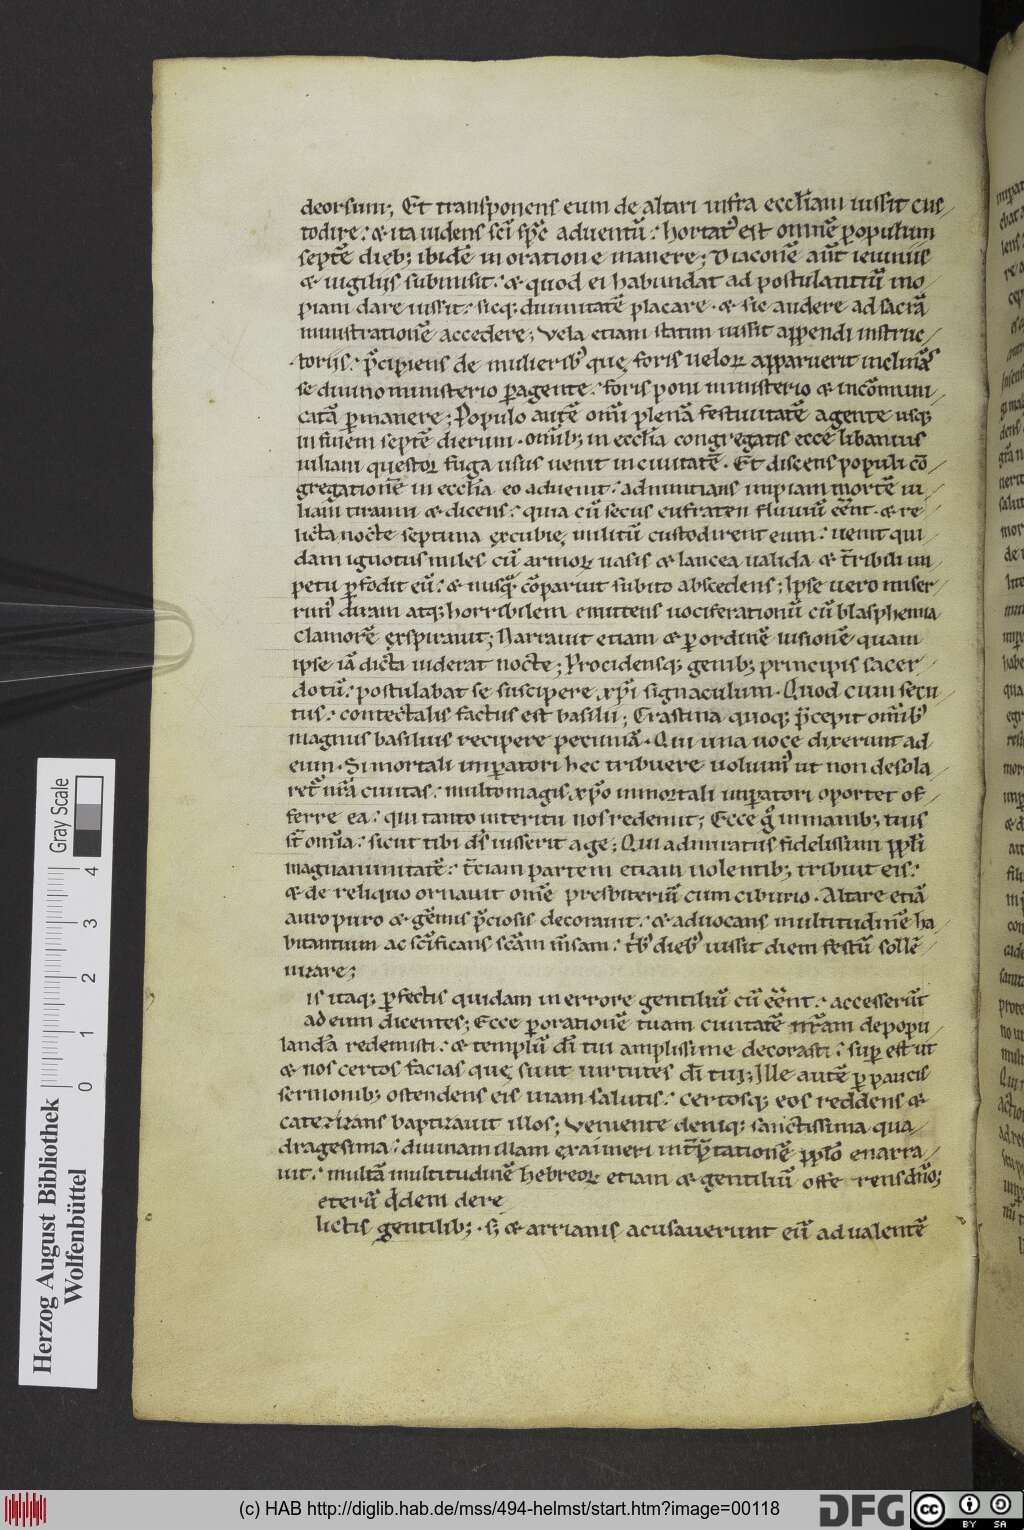 deorsum; Et transponens eum de altari infra eccl̄iam iussit cus
todire. & ita uidens sc̄i sp̄c aduentū. hortat᷒ est omnē populum
septē dieb; ibidē in oratione manere; Diaconē aūt ieiuniis
& uigiliis submisit. & quod ei habundat ad postulatitiū ino
piam dare iussit. sicq; diuinitatē placare. & sic audere ad sacrā
ministrationē accedere; Vela etiam statim iussit appendi instruc
toriis. p̄cipiens de mulierib᷒ quę foris uelorꝝ apparuerit inclinās
se diuino ministerio ꝑagente. foris poni ministerio & incōmuni
catā ꝑmanere; Populo autē omī plenā festiuitatē agente usq;
in finem septē dierum. omīb; in eccl̄ia congregatis ecce libanius
iuliani questorꝝ fuga usus uenit in ciuitatē. Et discens populi cō
gregationē in eccl̄ia eo aduenit. adnuntians impiam mortē iu
liani tiranni & dicens. quia cū secus eufraten fluuiū eēnt. & re
licta nocte septima ęxcubię militū custodirent eum. uenit qui
dam ignotus miles cū armorꝝ uasis & lancea ualida & t̄ribili im
petu ꝑfodit eū. & nusq̄ cōparuit subito abscedens; Ipse uero miser
rim᷒ diram atq; horribilem emittens uociferationū cū blasphemia
clamorē ęxspirauit; Narrauit etiam & ꝑ ordinē uisionē quam
ipse iā dicta uiderat nocte; Procidensq; genib; principis sacer
dotū. postulabat se suscipere xp̄i signaculum. Quod cum secu
tus. contectalis factus est basilii; Crastina quoq; p̄cepit omīb᷒
magnus basilius recipere pecuniā. Qui una uoce dixerunt ad
eum. Si mortali imꝑatori hec tribuere uoluim᷒ ut non desola
ret᷒ nr̄a ciuitas. multo magis xp̄o inmortali imꝑatori oportet of
ferre ea. qui tanto interitu nos redemit; Ecce ḡ in manib; tuis
st̄ omīa. sicut tibi dn̄s iusserit age; Qui admiratus fidelissimi pp̄li
magnanimitatē. t̄ciam partem etiam nolentib; tribuit eis.
& de reliquo ornauit omē presbiteriū cum ciburio. Altare etiā
auro puro & gēmis p̄ciosis decorauit. & aduocans multitudinē ha
bitantium ac sc̄ificans sc̄am m̄sam. t̄b᷒ dieb᷒ iussit diem festū sollē
nizare;
is itaq; ꝑfectis quidam in errore gentiliū cū eēnt. accesserūt
ad eum dicentes; Ecce ꝑ orationē tuam ciuitatē nr̄am depopu
landā redemisti. & templū dī tui amplissime decorasti. suꝑ est ut
& nos certos facias quę sunt uirtutes dī tui; Ille autē ꝑ paucis
sermonib; ostendens eis uiam salutis. certosq; eos reddens &
catezizans baptizauit illos; Veniente deniq; sanctissima qua
dragesima. diuinam illam ęxaimeri int̄p̄tationē pp̄lo enarra
uit. multā multitudinē hebreorꝝ etiam & gentiliū offe rens dn̄o;
eterū q̄dem dere
lictis gentilib;. s; & arrianis acusauerunt eū ad ualentē
Herzog August Bibliothek
Wolfenbüttel
Gray Scale
0 1 2 3 4
(c) HAB http://diglib.hab.de/mss/494-helmst/start.htm?image=00118
DFG
cc BY SA